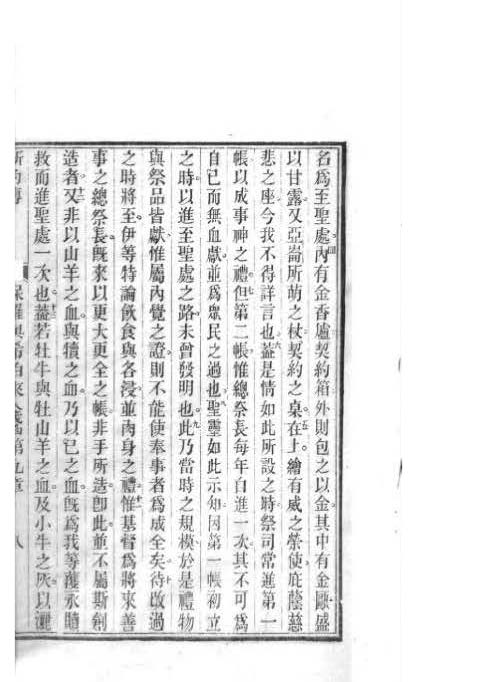 名爲至聖處內有金香爐契約箱外則包之以金其中有金甌盛
以甘露又亞崙所萌之杖契約之桌在上繪有威之榮使庇蔭慈
悲之座今我不得詳言也葢是情如此所設之時祭司常進第一
帳以成事神之禮但第二帳惟總祭長每年自進一次其不可爲
自己而無血獻並爲眾民之過也聖靈如此示知因第一帳初立
之時以進至聖處之路未曾發明也此乃當時之規模於是禮物
與祭品皆獻惟屬內覺之證則不能使奉事者爲成全矣待改過
之時將至伊等特論飲食與各浸並肉身之禮惟基督爲將來善
事之總祭長旣來以更大更全之帳非手所造卽此並不屬斯創
造者又非以山羊之血與犢之血乃以己之血旣爲我等獲永贖
救而進聖處一次也葢若牡牛與牡山羊之血及小牛之灰以灑
保羅與希伯來人書第九章 八